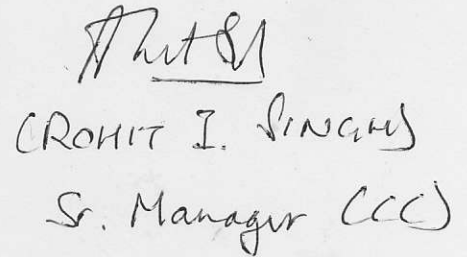 (ROHIT I. SINGH)
Sr. Manager (CCC)